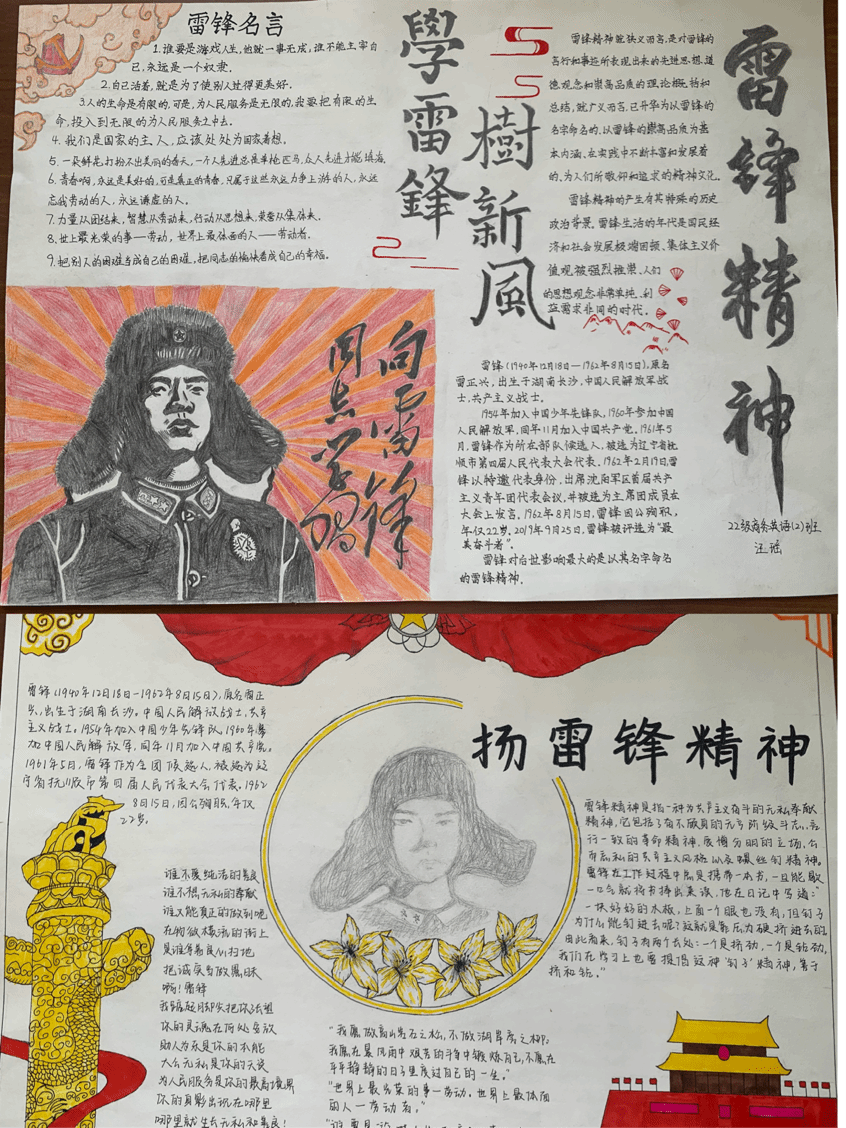 雷锋名言
1.谁要是游戏人生,他就一事无成,谁不能主宰自
己,永远是一个奴隶。
2.自己活着,就是为了使别人过得更美好。
3.人的生命是有限的,可是,为人民服务是无限的,我要把有限的生
命,投入到无限的为人民服务之中去。
4.我们是国家的主人,应该处处为国家着想。
5.一朵鲜花打扮不出美丽的春天,一个人先进总是单枪匹马,众人先进才能填海。
6.青春啊,永远是美好的,可是真正的青春,只属于这些永远力争上游的人,永远
忘我劳动的人,永远谦虚的人。
7.力量从团结来,智慧从劳动来,行动从思想来,荣誉从集体来。
8.世上最光荣的事——劳动,世界上最体面的人——劳动者。
9.把别人的困难当成自己的困难,把同志的愉快看成自己的幸福。
學雷鋒
樹新風
雷锋精神就狭义而言,是对雷锋的
言行和事迹所表现出来的先进思想,道
德观念和崇高品质的理论概括和
总结,就广义而言,已升华为以雷锋的
名字命名的,以雷锋的崇高品质为基
本内涵、在实践中不断丰富和发展着
的、为人们所敬仰和追求的精神文化。
雷锋精神的产生有其特殊的历史
政治背景。雷锋生活的年代是国民经
济和社会发展极端困顿、集体主义价
值观被强烈推崇、人们
的思想观念非常单纯、利
益需求非同的时代。
雷锋精神
向雷锋
同志学习
雷锋(1940年12月18日—1962年8月15日),原名
雷正兴,出生于湖南长沙,中国人民解放军战
士,共产主义战士。
1954年加入中国少年先锋队,1960年参加中国
人民解放军,同年11月加入中国共产党。1961年5
月,雷锋作为所在部队候选人,被选为辽宁省抚
顺市第四届人民代表大会代表。1962年2月19日,雷
锋以特邀代表身份,出席沈阳军区首届共产
主义青年团代表会议,并被选为主席团成员在
大会上发言。1962年8月15日,雷锋因公殉职,
年仅22岁。2019年9月25日,雷锋被评选为“最
美奋斗者”。
雷锋对后世影响最大的是以其名字命名
的雷锋精神。
22级商务英语(2)班
汪瑶
扬雷锋精神
雷锋(1940年12月18日—1962年8月15日),原名雷正
兴,出生于湖南长沙。中国人民解放战士,共产
主义战士。1954年加入中国少年先锋队,1960年参
加中国人民解放军,同年11月加入中国共产党。
1961年5月,雷锋作为全团候选人,被选为辽
宁省抚顺市第四届人民代表大会代表。1962
8月15日,因公殉职,年仅
22岁。
谁不爱纯洁的善良
谁不想无私的奉献
谁又能真正的做到呢
在物欲横流的街上
是谁将善良
把诚实当做
啊!雷锋
你的灵魂在何处安放
助人为乐是你的本能
大公无私是你的天该
为人民服务是你的最高境界
你的身影出现在哪里
哪里就生长无私和善良!
雷锋精神是指一种为共产主义奋斗的无私奉献
精神,它包括了爱不厌真的无产阶级斗志,言
行一致的革命精神,爱憎分明的立场,公
而忘私的共产主义风格以及螺丝钉精神。
雷锋在工作过程中总是携带一本书,一旦能歇
一口气就将书择出来读,他在日记中写道:“
一块好好的木板,上面一个眼也没有,但钉子
为什么能钉进去呢?这就是靠压力硬挤进去的。
由此看来,钉子有两个长处:一个是挤劲,一个是钻劲,
我们在学习上也要提倡这种‘钉子’精神,善于
挤和钻。”
“我愿做高山岩石之松,不做湖岸旁之柳;
我愿在暴风雨中艰苦的斗争中锻炼自己,不愿在
平平静静的日子里度过自己的一生。”
“世界上最光荣的事—劳动。世界上最体面
的人—劳动者。”